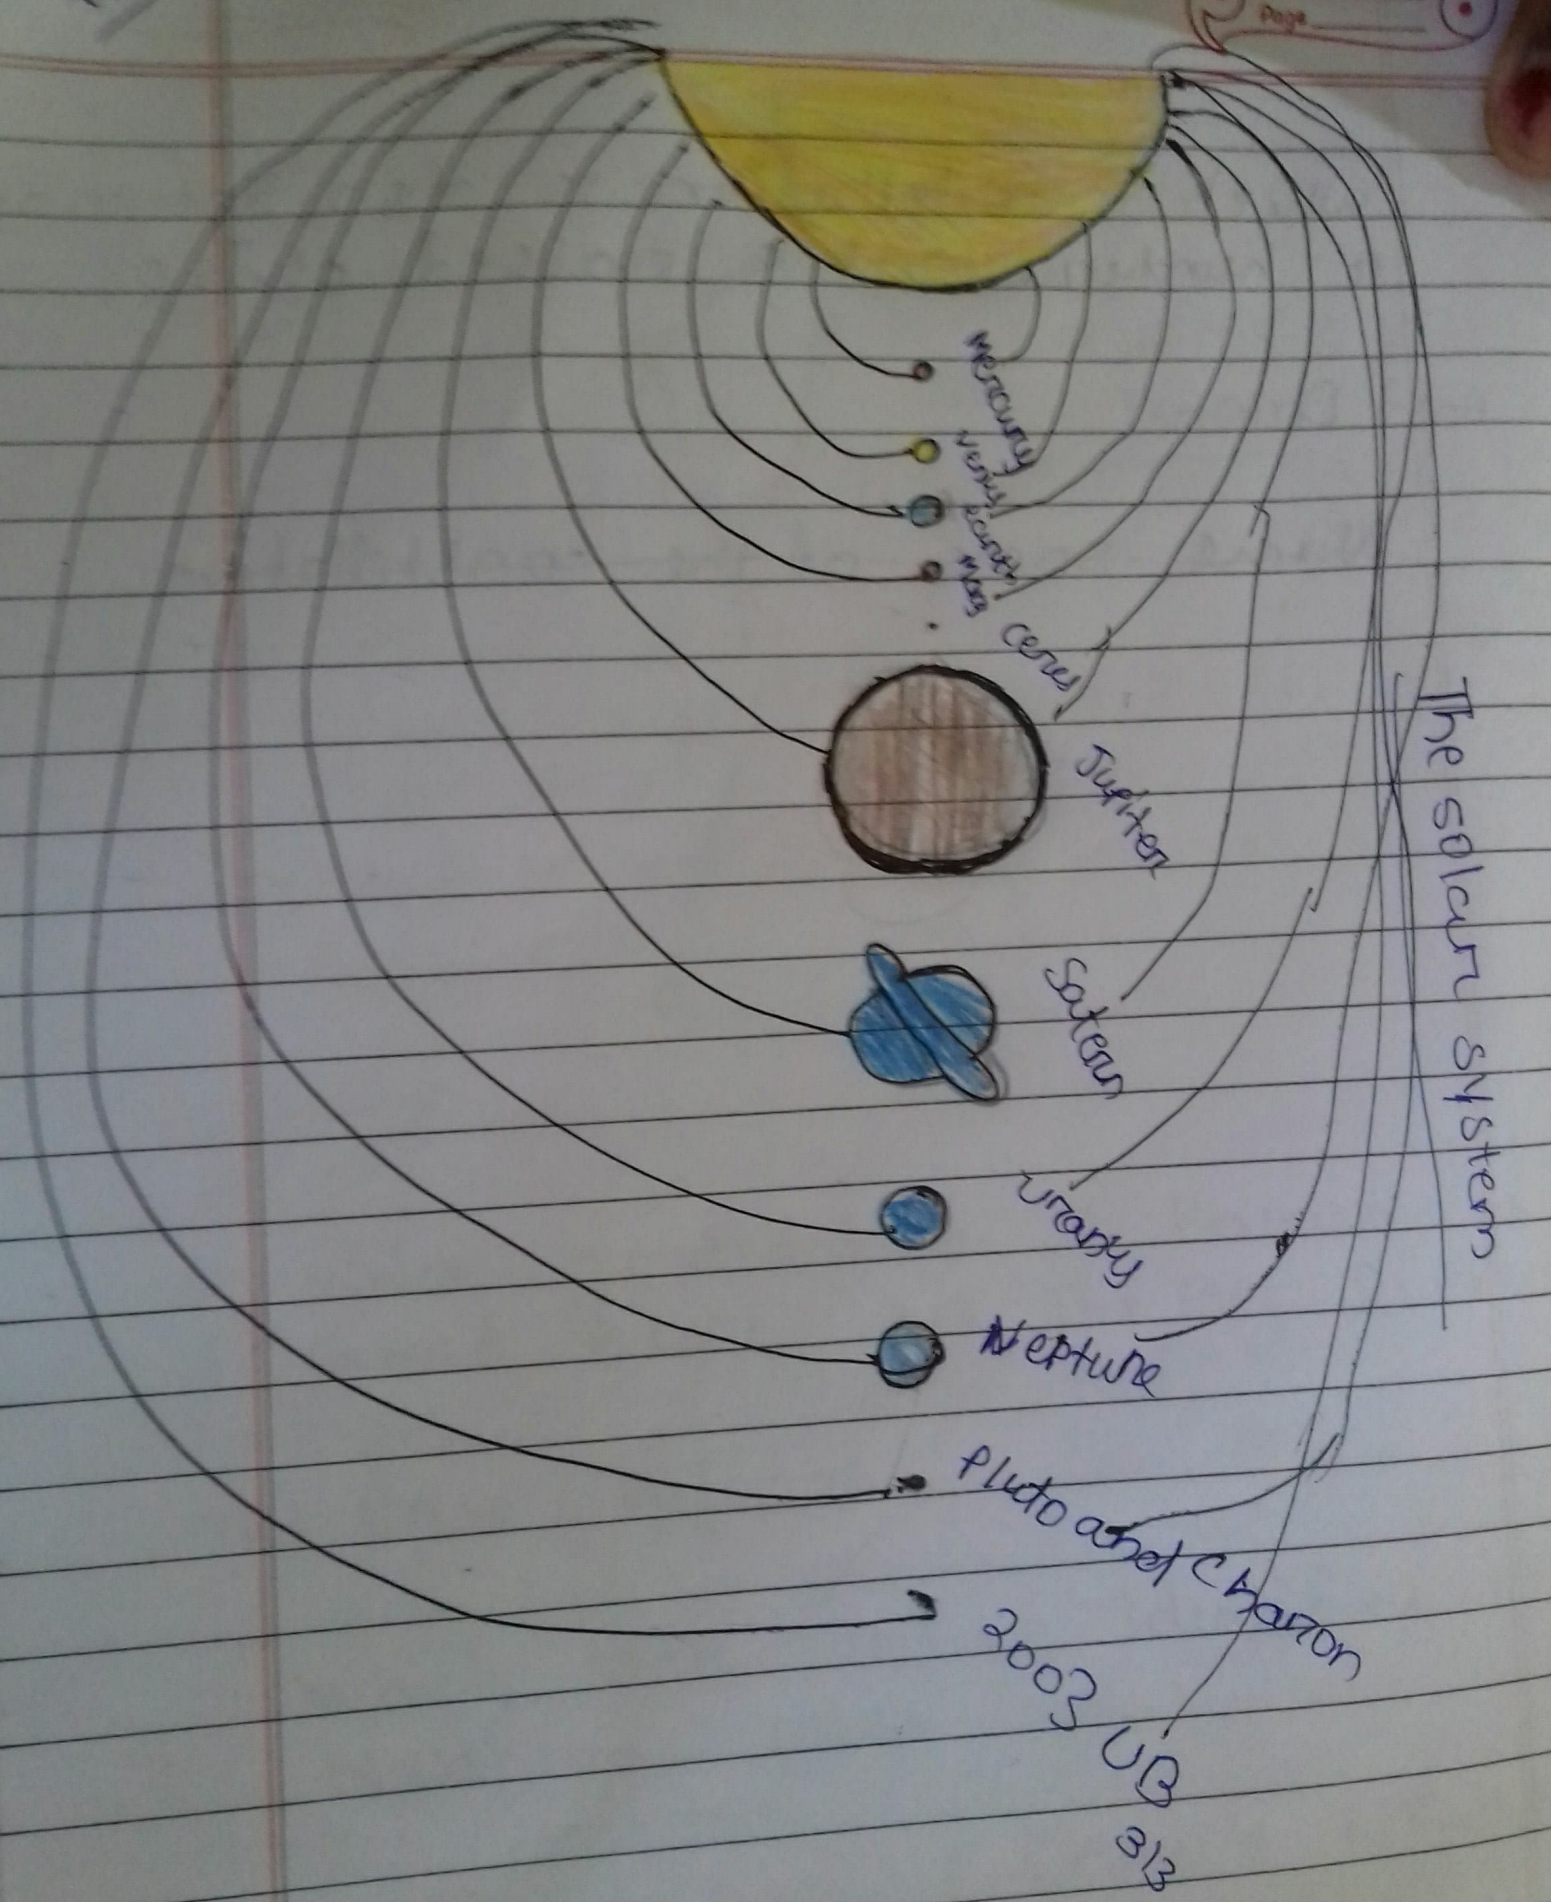 Page
The solar system
Mercury
Venus
Earth
Mars
Ceres
Jupiter
Satern
Urany
Neptune
Pluto and Charon
2003 UB 313